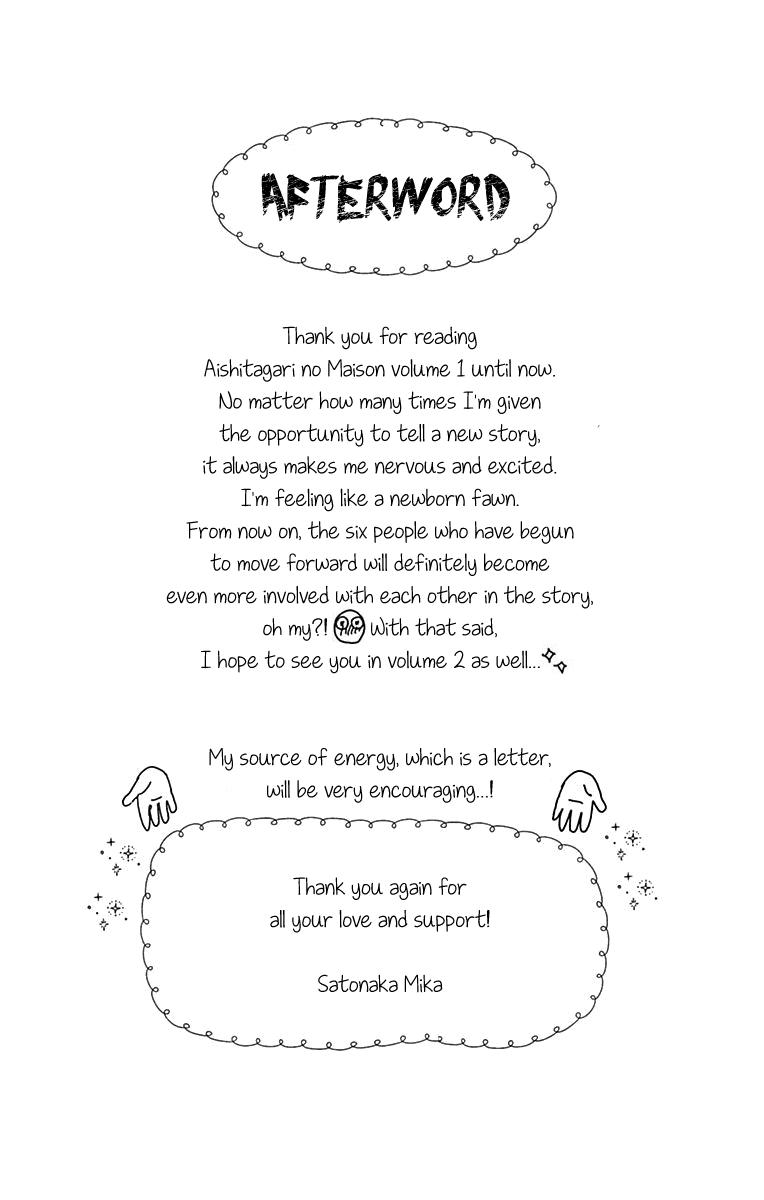 AFTERWORD
Thank you for reading
Aishitagari no Maison volume 1 until now.
No matter how many times I'm given
the opportunity to tell a new story,
it always makes me nervous and excited.
I'm feeling like a newborn fawn.
From now on, the six people who have begun
to move forward will definitely become
even more involved with each other in the story,
oh my?! With that said,
I hope to see you in volume 2 as well...
My source of energy, which is a letter,
will be very encouraging...!
Thank you again for
all your love and support!
Satonaka Mika